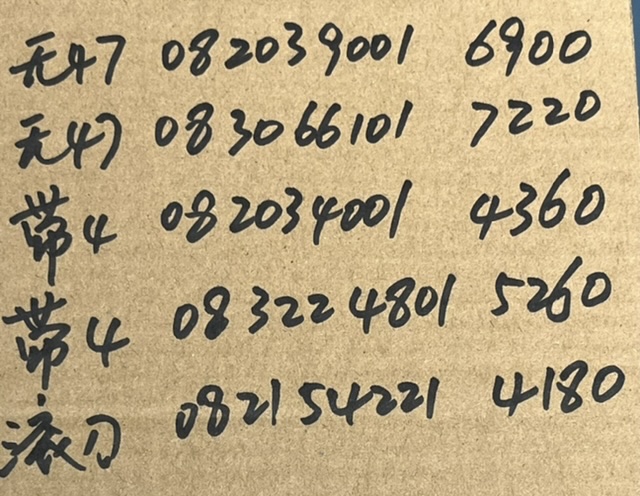 无47 082039001 6900
无47 083066101 7220
带4 082034001 4360
带4 083224801 5260
滚刀 082154221 4180